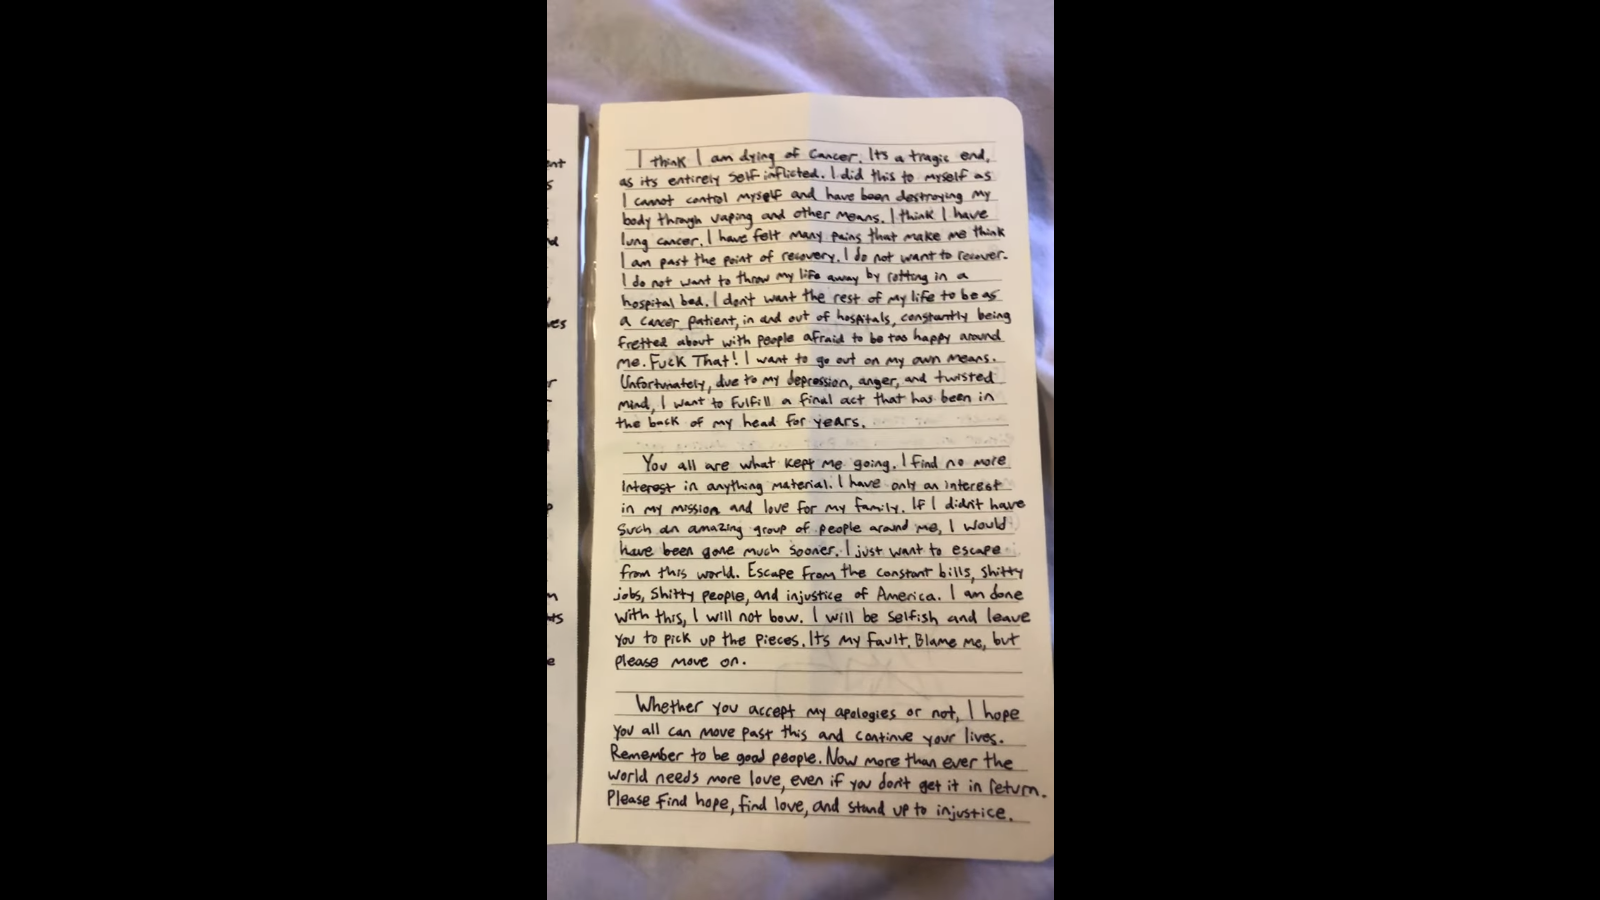 I think I am dying of cancer. Its a tragic end,
as its entirely self inflicted. I did this to myself as
I cannot control myself and have been destroying my
body through vaping and other means. I think I have
lung cancer. I have felt many pains that make me think
I am past the point of recovery. I do not want to recover.
I do not want to throw my life away by rotting in a
hospital bed. I dont want the rest of my life to be as
a cancer patient, in and out of hospitals, constantly being
fretted about with people afraid to be too happy around
me. Fuck That! I want to go out on my own means.
Unfortunately, due to my depression, anger, and twisted
mind, I want to fulfill a final act that has been in
the back of my head for years.
You all are what kept me going. I find no more
interest in anything material. I have only an interest
in my mission and love for my family. If I didn't have
such an amazing group of people around me, I would
have been gone much sooner. I just want to escape
from this world. Escape from the constant bills, shitty
jobs, shitty people, and injustice of America. I am done
with this, I will not bow. I will be selfish and leave
you to pick up the pieces. Its my fault. Blame me, but
please move on.
Whether you accept my apologies or not, I hope
you all can move past this and continue your lives.
Remember to be good people. Now more than ever the
world needs more love, even if you don't get it in return.
Please find hope, find love, and stand up to injustice.